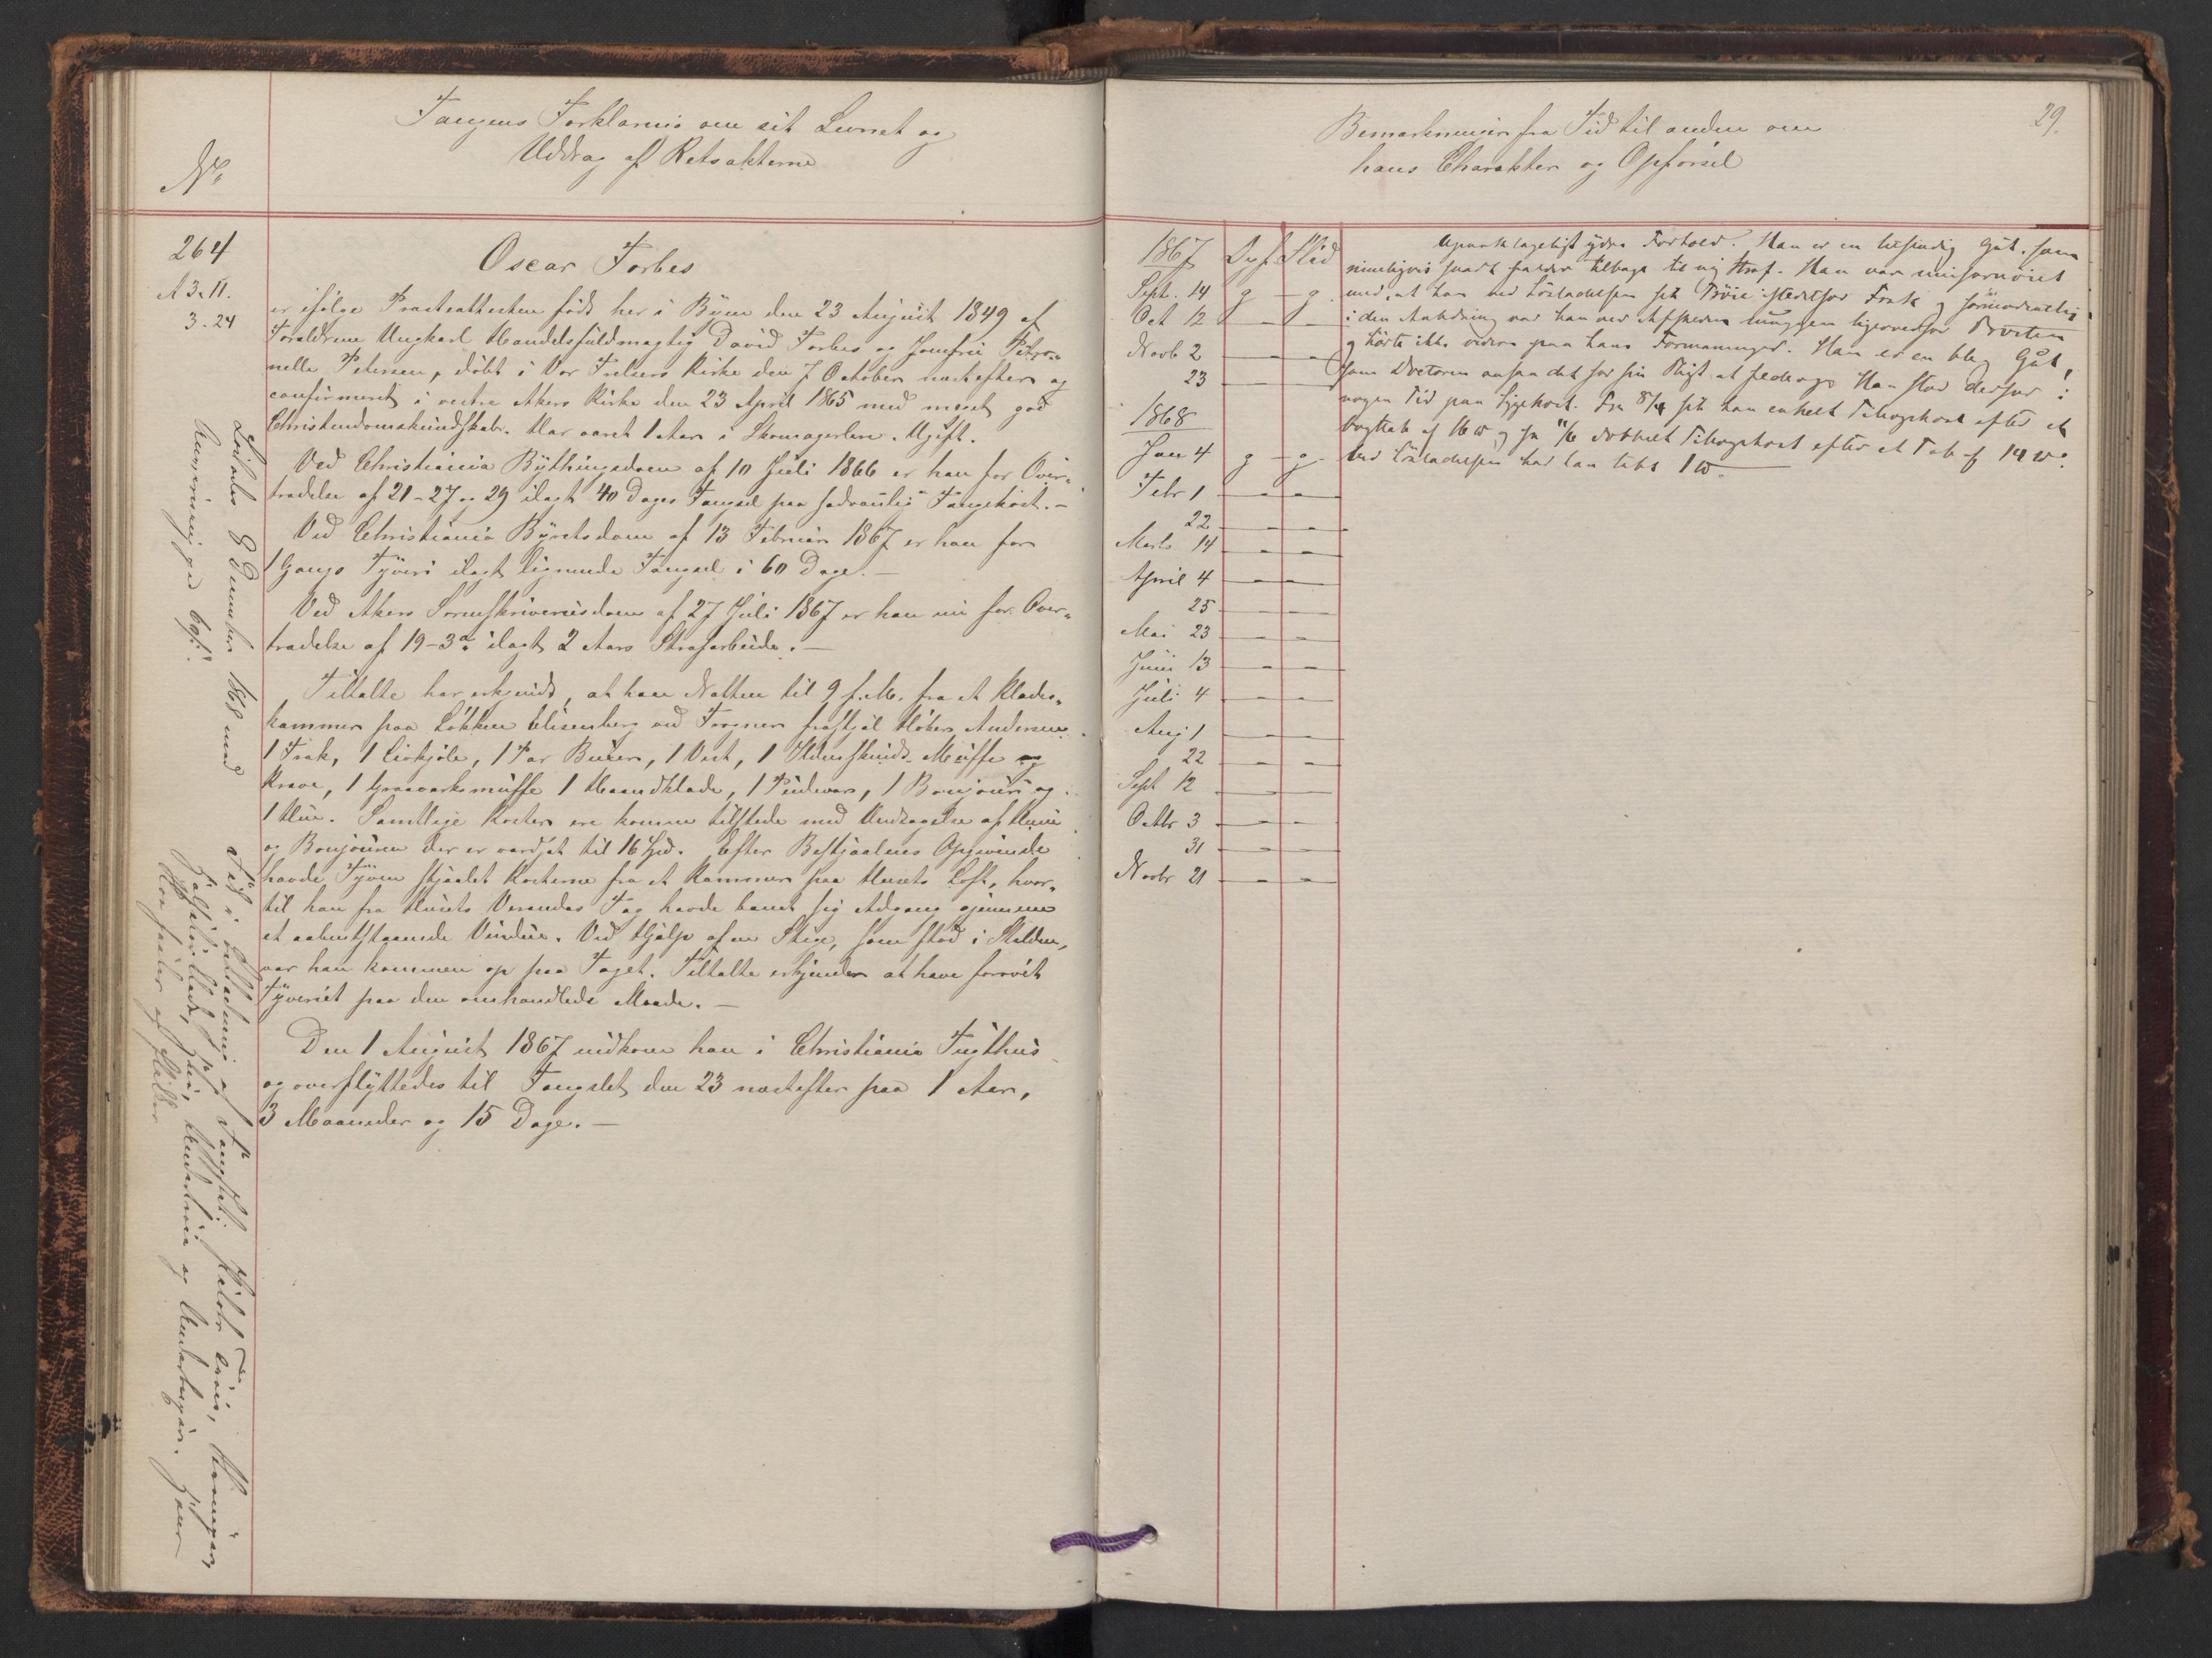 Fangens Forklaring om sit Levnet og
Uddrag af Retsakterne
No
264
A 3. 11.
3. 24
Oscar Forbes
er ifølge Præsteattesten født her i Byen den 23 August 1849 af
Forældrene Ungkarl Handelsfuldmægtig David Forbes og Jomfru Petro-
nelle Petersen, døbt i Vor Frelsers Kirke den 7 October næstefter og
confirmeret i vestre Akers Kirke den 23 April 1865 med meget god
Christendomskundskab. Har været 1 Aar i Skomagerlære. Ugift.
Ved Christiania Bythingsdom af 10 Juli 1866 er han for Over-
trædelse af 21-27 og 29 ilagt 40 Dages Fængsel paa sædvanlig Fangekost. -
Ved Christiania Byretsdom af 13 Februar 1867 er han for
1 Gangs Tyveri ilagt lignende Fængsel i 60 Dage. -
Ved Akers Sorenskriveriesdom af 27 Juli 1867 er han nu for Over-
trædelse af 19-3a ilagt 2 Aars Strafarbeide. -
Tiltalte har erkjendt, at han Natten til 9 f. M. fra et Klædes-
kammer paa Løkken Elisenberg ved Frogner frastjal Høker Andersen
1 Frak, 1 Livkjole, 1 Par Buxer, 1 Vest, 1 Ilderskinds Muffe og
Krave, 1 Graaværksmuffe 1 Haandklæde, 1 Pudevar, 1 Bonjour og
1 Hue. Samtlige Koster ere komne tilstede med Undtagelse af Huen
og Bonjouren der er værdsat til 16 Spd. Efter Bestjaalnes Opgivende
havde Tyven stjaalet Kosterne fra et Kammer paa Husets Loft, hvor-
til han fra Husets Verandas Tag havde banet sig Adgang gjennem
et aabentstaaende Vindue. Ved Hjælp af en Stige, som stod i Stalden,
var han kommen op paa Taget. Tiltalte erkjender at have forøvet
Tyveriet paa den omhandlede Maade. -
Den 1 August 1867 indkom han i Christiania Tugthus
og overflyttedes til Fængslet den 23 næstefter paa 1 Aar,
3 Maaneder og 15 Dage. -
Løslades 8 December 1868 med
Tid i Anledning af Fængslet
Bemærkninger fra Tid til anden om
hans Charakter og Opførsel
29.
1867 Opf. Flid
Sept. 14 g - g
Oct 12 - -
Novb 2 - -
23 - -
1868
Jan 4 g - g
Febr 1 - -
22 - -
Marts 14 - -
April 4 - -
25 - -
Mai 23 - -
Juni 13 - -
Juli 4 - -
Aug 1 - -
22 - -
Sept 12 - -
Octbr 3 - -
31 - -
Novbr 21 - -
Upaaklageligt ydre Forhold. Han er en letsindig Gut, som
rimeligvis snart falder tilbage til ny Straf. Han var misfornøiet
med, at han ved Løsladelsen fik Trøie istedetfor Frak og
i den Anledning var han ved Afskeden ligeoverfor
og hørte ikke videre paa hans Formaninger. Han er en bleg Gut,
som Doctoren ansaa det for sin Pligt at Han stod derfor i
nogen Tid paa Sygekost. Fra 8/4 fik han enkelt Tillægskost efter et
Vægttab af 16 ℔ og fra 11/6 dobbelt Tillægskost efter et Tab af 14 ℔.
Ved Løsladelsen har han tabt 1 ℔